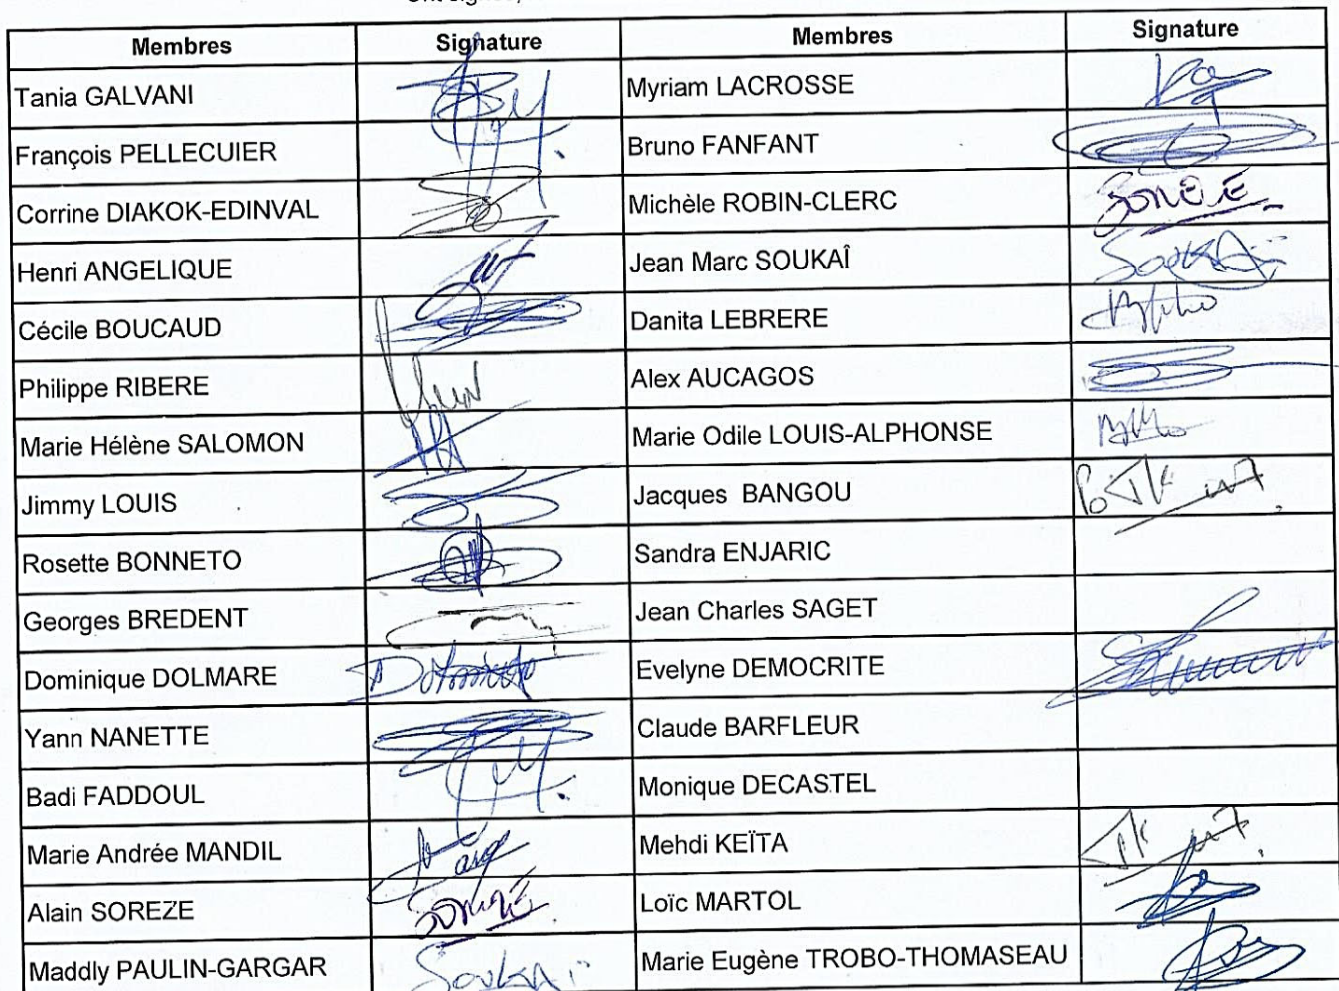 Membres Signature Membres Signature
Tania GALVANI Myriam LACROSSE
François PELLECUIER Bruno FANFANT
Corrine DIAKOK-EDINVAL Michèle ROBIN-CLERC
Henri ANGELIQUE Jean Marc SOUKAÎ SOUKAÏ
Cécile BOUCAUD Danita LEBRERE
Philippe RIBERE Alex AUCAGOS
Marie Hélène SALOMON Marie Odile LOUIS-ALPHONSE
Jimmy LOUIS Jacques BANGOU
Rosette BONNETO Sandra ENJARIC
Georges BREDENT Jean Charles SAGET
Dominique DOLMARE Evelyne DEMOCRITE
Yann NANETTE Claude BARFLEUR
Badi FADDOUL Monique DECASTEL
Marie Andrée MANDIL Mehdi KEÏTA
Alain SOREZE Loïc MARTOL
Maddly PAULIN-GARGAR Soukaï Marie Eugène TROBO-THOMASEAU